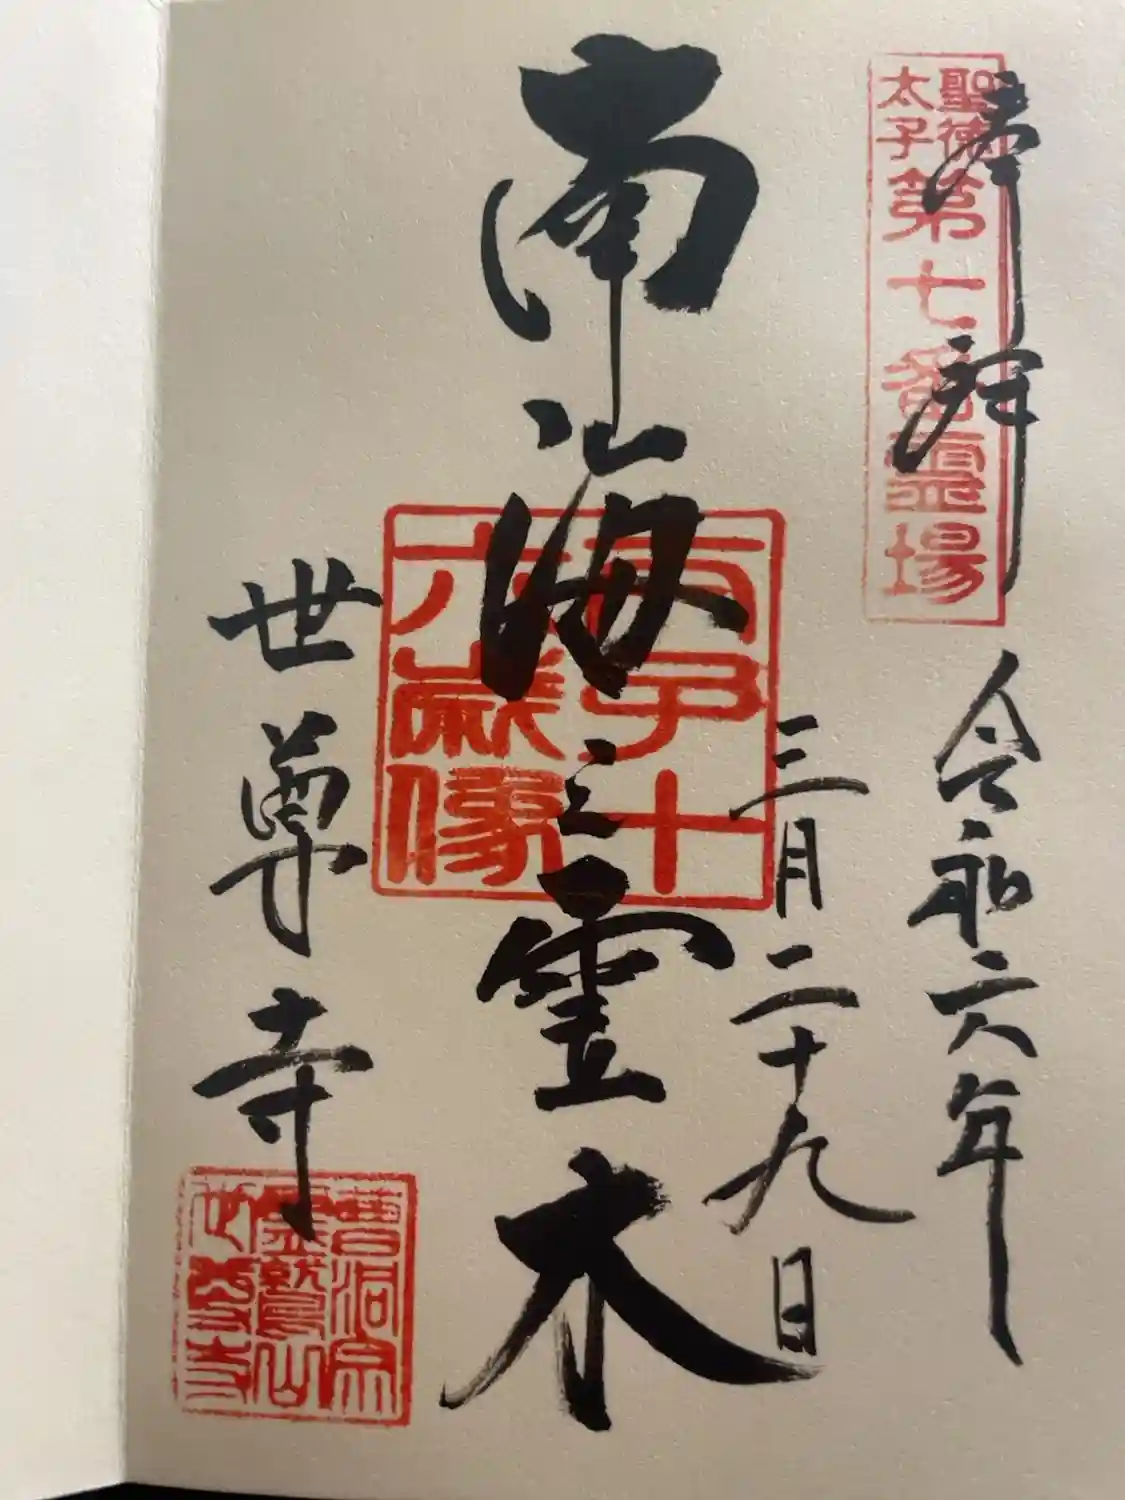 奉拝
聖徳
太子
第七番霊場
令和六年
三月二十九日
南海之霊木
太子十
六歳像
世尊寺
曹洞宗
霊鷲山
世尊寺